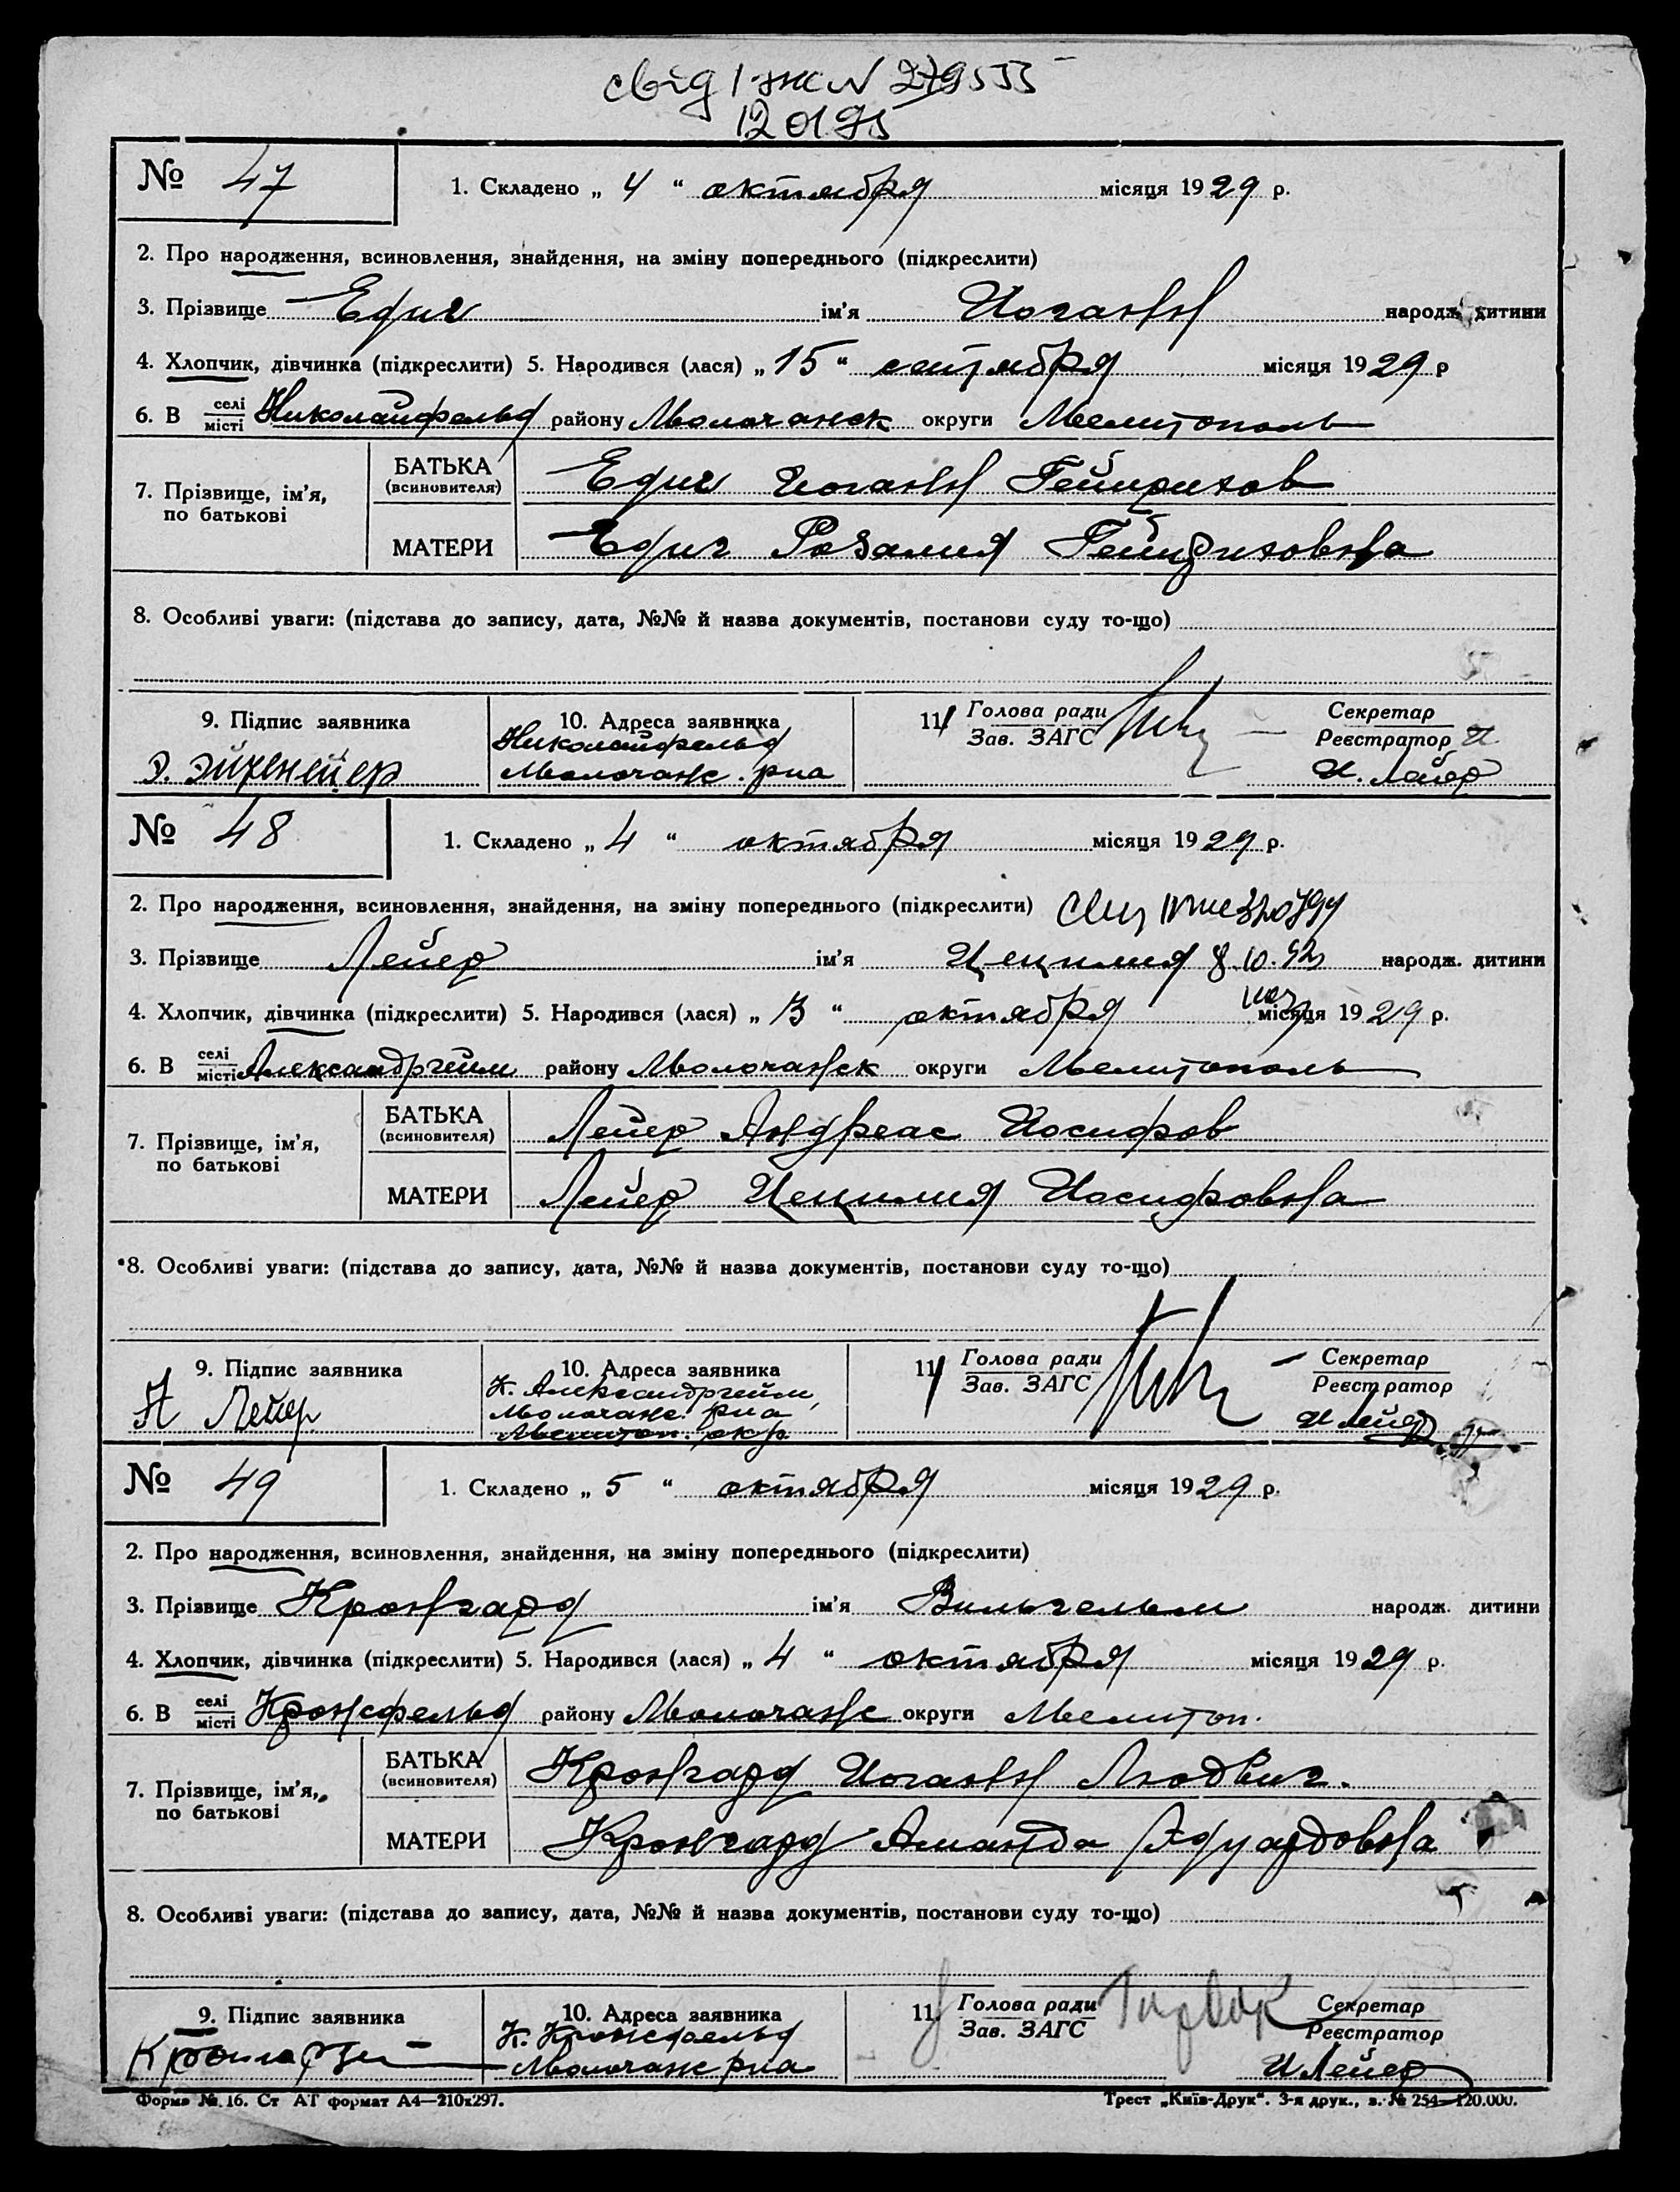 свід І жс № 279555
12 01 95
№ 47
1. Складено „ 4 “ октября місяця 1929 р.
2. Про народження, всиновлення, знайдення, на зміну попереднього (підкреслити)
3. Прізвище Едиг ім'я Иоганн народж. дитини
4. Хлопчик, дівчинка (підкреслити) 5. Народився (лася) „ 15 “ сентября місяця 1929 р
6. В селі місті Николайфельд району Молочанск округи Мелитополь
7. Прізвище, ім'я, по батькові
БАТЬКА (всиновителя) Едиг Иоганн Гейнрихов
МАТЕРИ Едиг Розалия Гейнриховна
8. Особливі уваги: (підстава до запису, дата, №№ й назва документів, постанови суду то-що)
9. Підпис заявника
10. Адреса заявника
11. Голова ради
Зав. ЗАГС
Секретар
Реєстратор
Николайфельд
Молочанс. р-на
И. Лейер
№ 48
1. Складено „ 4 “ октября місяця 1929 р.
2. Про народження, всиновлення, знайдення, на зміну попереднього (підкреслити)
3. Прізвище Лейер ім'я Цецилия 8.10. народж. дитини
4. Хлопчик, дівчинка (підкреслити) 5. Народився (лася) „ 3 “ октября місяця 1929 р.
6. В селі місті Александргейм району Молочанск округи Мелитополь
7. Прізвище, ім'я, по батькові
БАТЬКА (всиновителя) Лейер Андреас Иосифов
МАТЕРИ Лейер Цецилия Иосифовна
8. Особливі уваги: (підстава до запису, дата, №№ й назва документів, постанови суду то-що)
9. Підпис заявника
10. Адреса заявника
11. Голова ради
Зав. ЗАГС
Секретар
Реєстратор
А Лейер
К. Александргейм,
Молочанс. р-на
Мелитоп. окр.
И Лейер
№ 49
1. Складено „ 5 “ октября місяця 1929 р.
2. Про народження, всиновлення, знайдення, на зміну попереднього (підкреслити)
3. Прізвище Кронгард ім'я Вильгельм народж. дитини
4. Хлопчик, дівчинка (підкреслити) 5. Народився (лася) „ 4 “ октября місяця 1929 р.
6. В селі місті Кронсфельд району Молочанс округи Мелитоп.
7. Прізвище, ім'я, по батькові
БАТЬКА (всиновителя) Кронгард Иоганн Людвиг.
МАТЕРИ Кронгард Аманда Эдуардовна
8. Особливі уваги: (підстава до запису, дата, №№ й назва документів, постанови суду то-що)
9. Підпис заявника
10. Адреса заявника
11. Голова ради
Зав. ЗАГС
Секретар
Реєстратор
К. Кронсфельд
Молочанс р-на
И Лейер
Форма № 16. Ст АТ формат А4—210х297.
Трест „Київ-Друк“. 3-я друк., з. № 254—120.000.